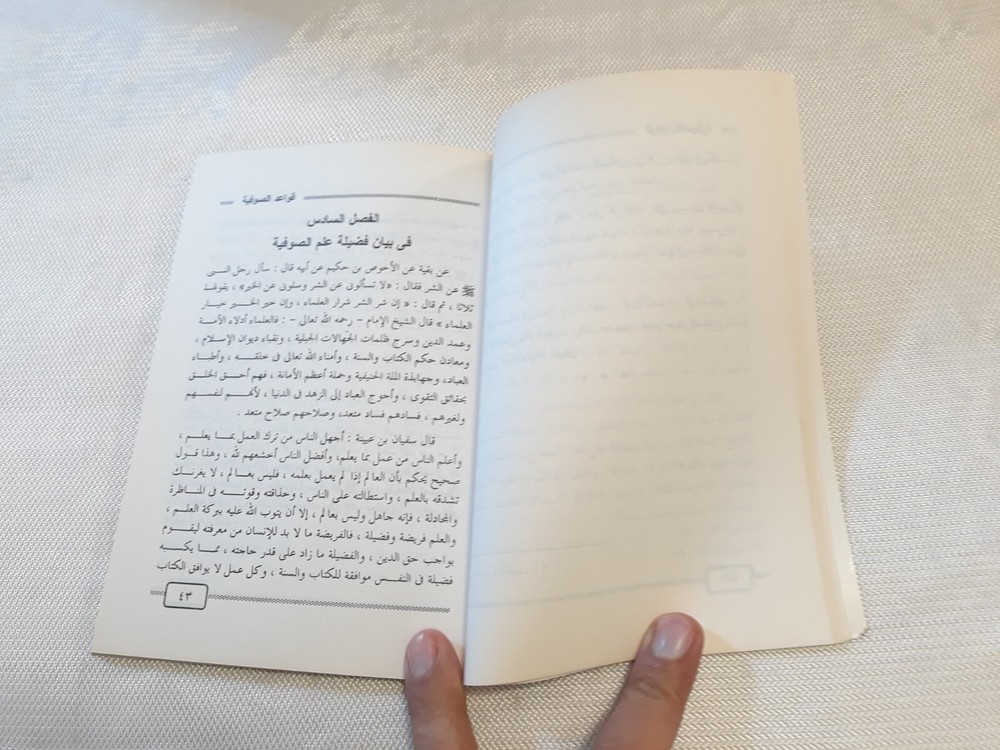 قواعد الصوفية
الفصل السادس
فى بيان فضيلة علم الصوفية
عن بقية عن الأحوص بن حكيم عن أبيه قال : سأل رجل النبى
ﷺ عن الشر فقال : «لا تسألونى عن الشر وسلونى عن الخير» ، يقولها
ثلاثا ، ثم قال : « إن شر الشر شرار العلماء ، وإن خير الخير خيار
العلماء » قال الشيخ الإمام – رحمه الله تعالى – : فالعلماء أدلاء الأمة
وعمد الدين وسرج ظلمات الجهالات الجبلية ، ونقباء ديوان الإسلام ،
ومعادن حكم الكتاب والسنة ، وأمناء الله تعالى فى خلقه ، وأطباء
العباد، وجهابذة الملة الحنيفية وحملة أعظم الأمانة ، فهم أحق الخلق
بحقائق التقوى ، وأحوج العباد إلى الزهد فى الدنيا ، لأنهم لنفسهم
ولغيرهم ، ففسادهم فساد متعد، وصلاحهم صلاح متعد .
قال سفيان بن عيينة : أجهل الناس من ترك العمل بما يعلم ،
وأعلم الناس من عمل بما يعلم، وأفضل الناس أخشعهم لله ، وهذا قول
صحيح يحكم بأن العالم إذا لم يعمل بعلمه ، فليس بعالم ، لا يغرنك
تشدقه بالعلم ، واستطالته على الناس ، وحذاقته وقوته فى المناظرة
والمجادلة ، فإنه جاهل وليس بعالم ، إلا أن يتوب الله عليه ببركة العلم ،
والعلم فريضة وفضيلة ، فالفريضة ما لا بد للإنسان من معرفته ليقوم
بواجب حق الدين ، والفضيلة ما زاد على قدر حاجته ، مما يكسبه
فضيلة فى النفس موافقة للكتاب والسنة ، وكل عمل لا يوافق الكتاب
٤٣